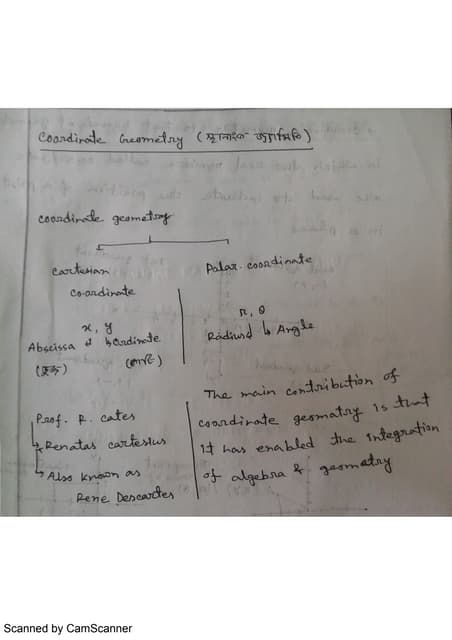 Coordinate Geometry (স্থানাংক জ্যামিতি)
coordinate geometry
cartesian
co-ordinate
x, y
Abscissa ↲ ↳ Ordinate
(ভুজ) (কোটি)
Polar coordinate
r, θ
Radius ↲ ↳ Angle
Prof. R. cates
↳ Renatas cartesius
↳ Also known as
Rene Descartes
The main contribution of
coordinate geomatry is that
it has enabled the integration
of algebra & geomatry
Scanned by CamScanner